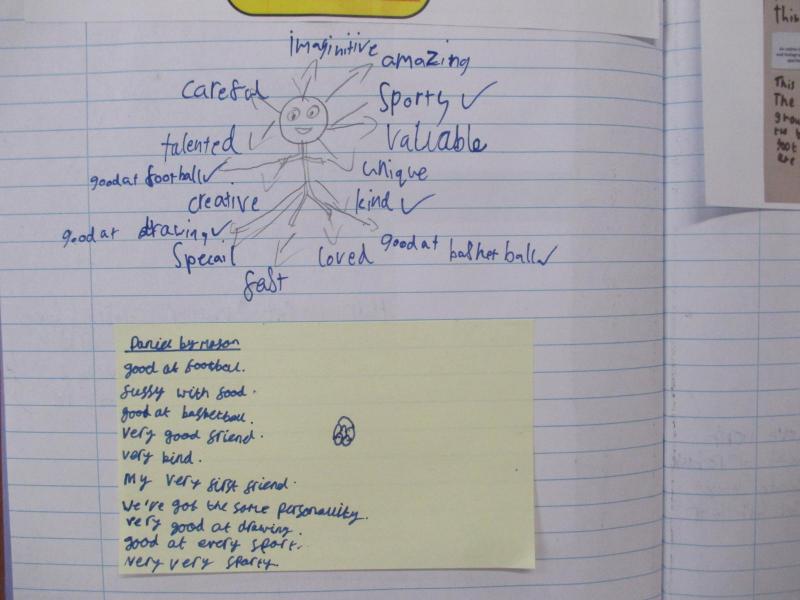 imaginitive
amazing
careful
Sporty ✓
talented
Valuable
good at football ✓
unique
creative
kind ✓
good at drawing ✓
good at basketball ✓
Specail
loved
fast
Daniel by Mason
good at football.
fussy with food.
good at basketball.
very good friend.
very kind.
My very first friend.
We've got the same personality.
very good at drawing.
good at every sport.
very very sporty.
This
The